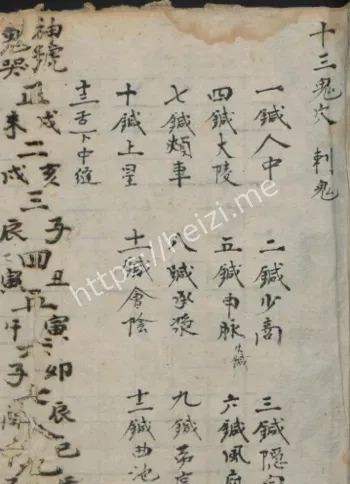 十三鬼穴 刺鬼
一鍼人中 二鍼少商 三鍼隱
四鍼大陵 五鍼申脉 火鍼 六鍼風府
七鍼頰車 八鍼承漿 九鍼勞宮
十鍼上星 十一鍼會陰 十二鍼曲池
十三舌下中縫
神號 戌 亥 子 丑 寅 卯 辰 巳
正 二 三 四 五 六 七 八
鬼哭 未 戌 辰 寅 午 子
https://heizi.me